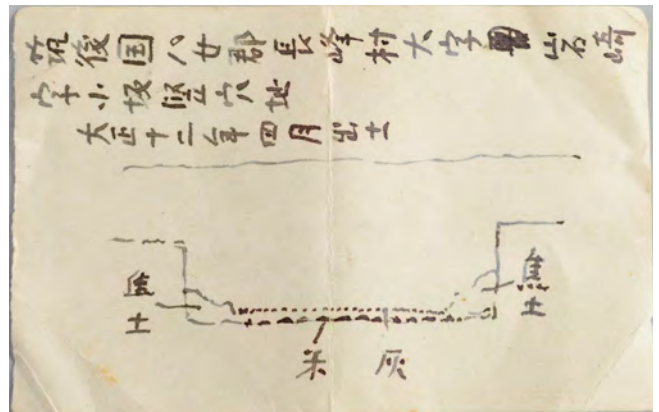 筑後国八女郡長峰村大字岩崎
字小坂竪穴址
大正十二年四月出土
土
土
米 灰